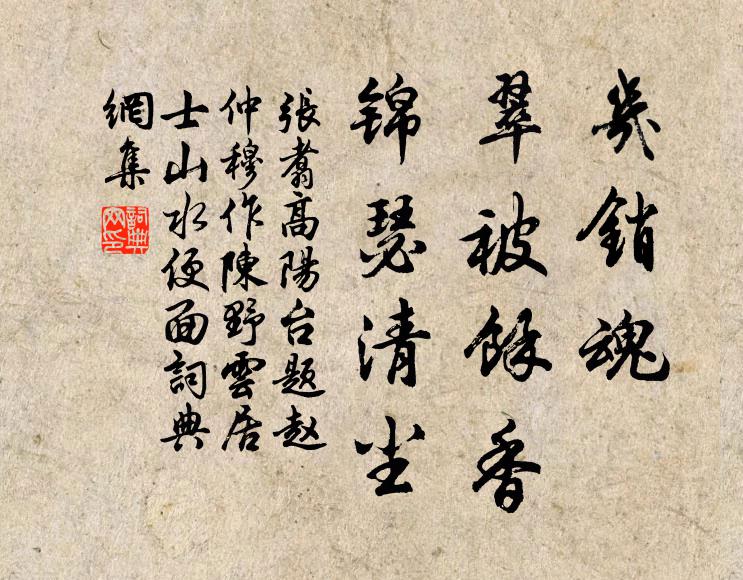 几销魂
翠被馀香
锦瑟清尘
張翥高陽台題赵
仲穆作陳野雲居
士山水便面詞典
網集
詞典
网印